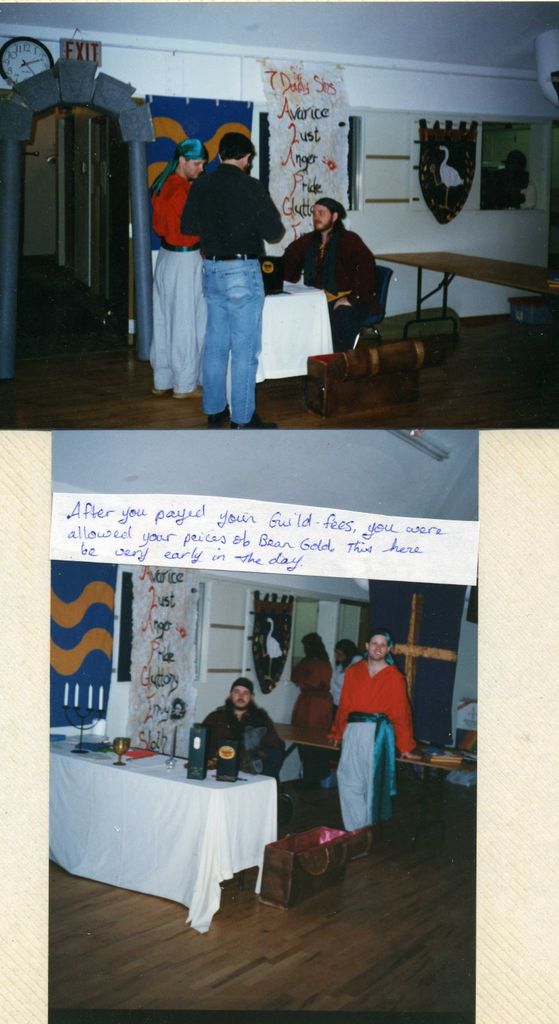 EXIT
7 Deadly Sins
Avarice
Lust
Anger
Pride
Glutto
After you payed your Guild-fees, you were
allowed your peices of Bean Gold. This here
be very early in the day.
Avarice
Lust
Anger
Pride
Gluttony
Envy
Sloth